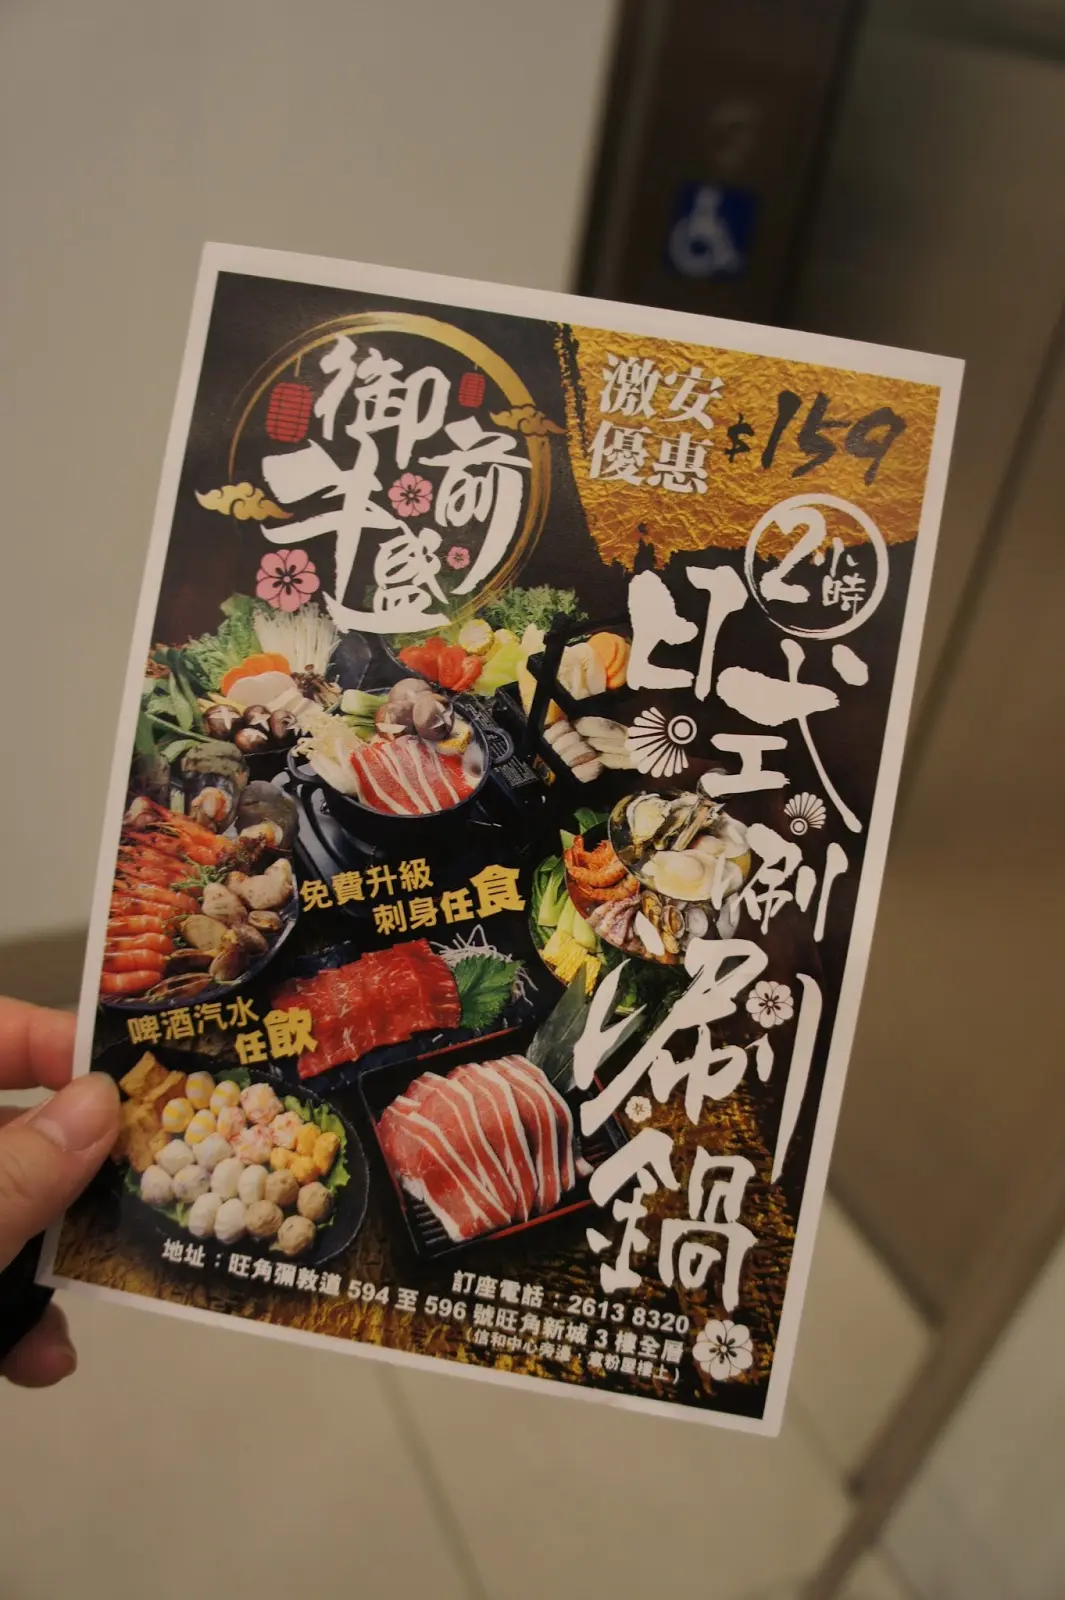 御前
牛盛
激安
優惠
$159
2小時
日式涮涮鍋
免費升級
刺身任食
啤酒汽水
任飲
訂座電話：2613 8320
地址：旺角彌敦道 594 至 596 號旺角新城 3 樓全層